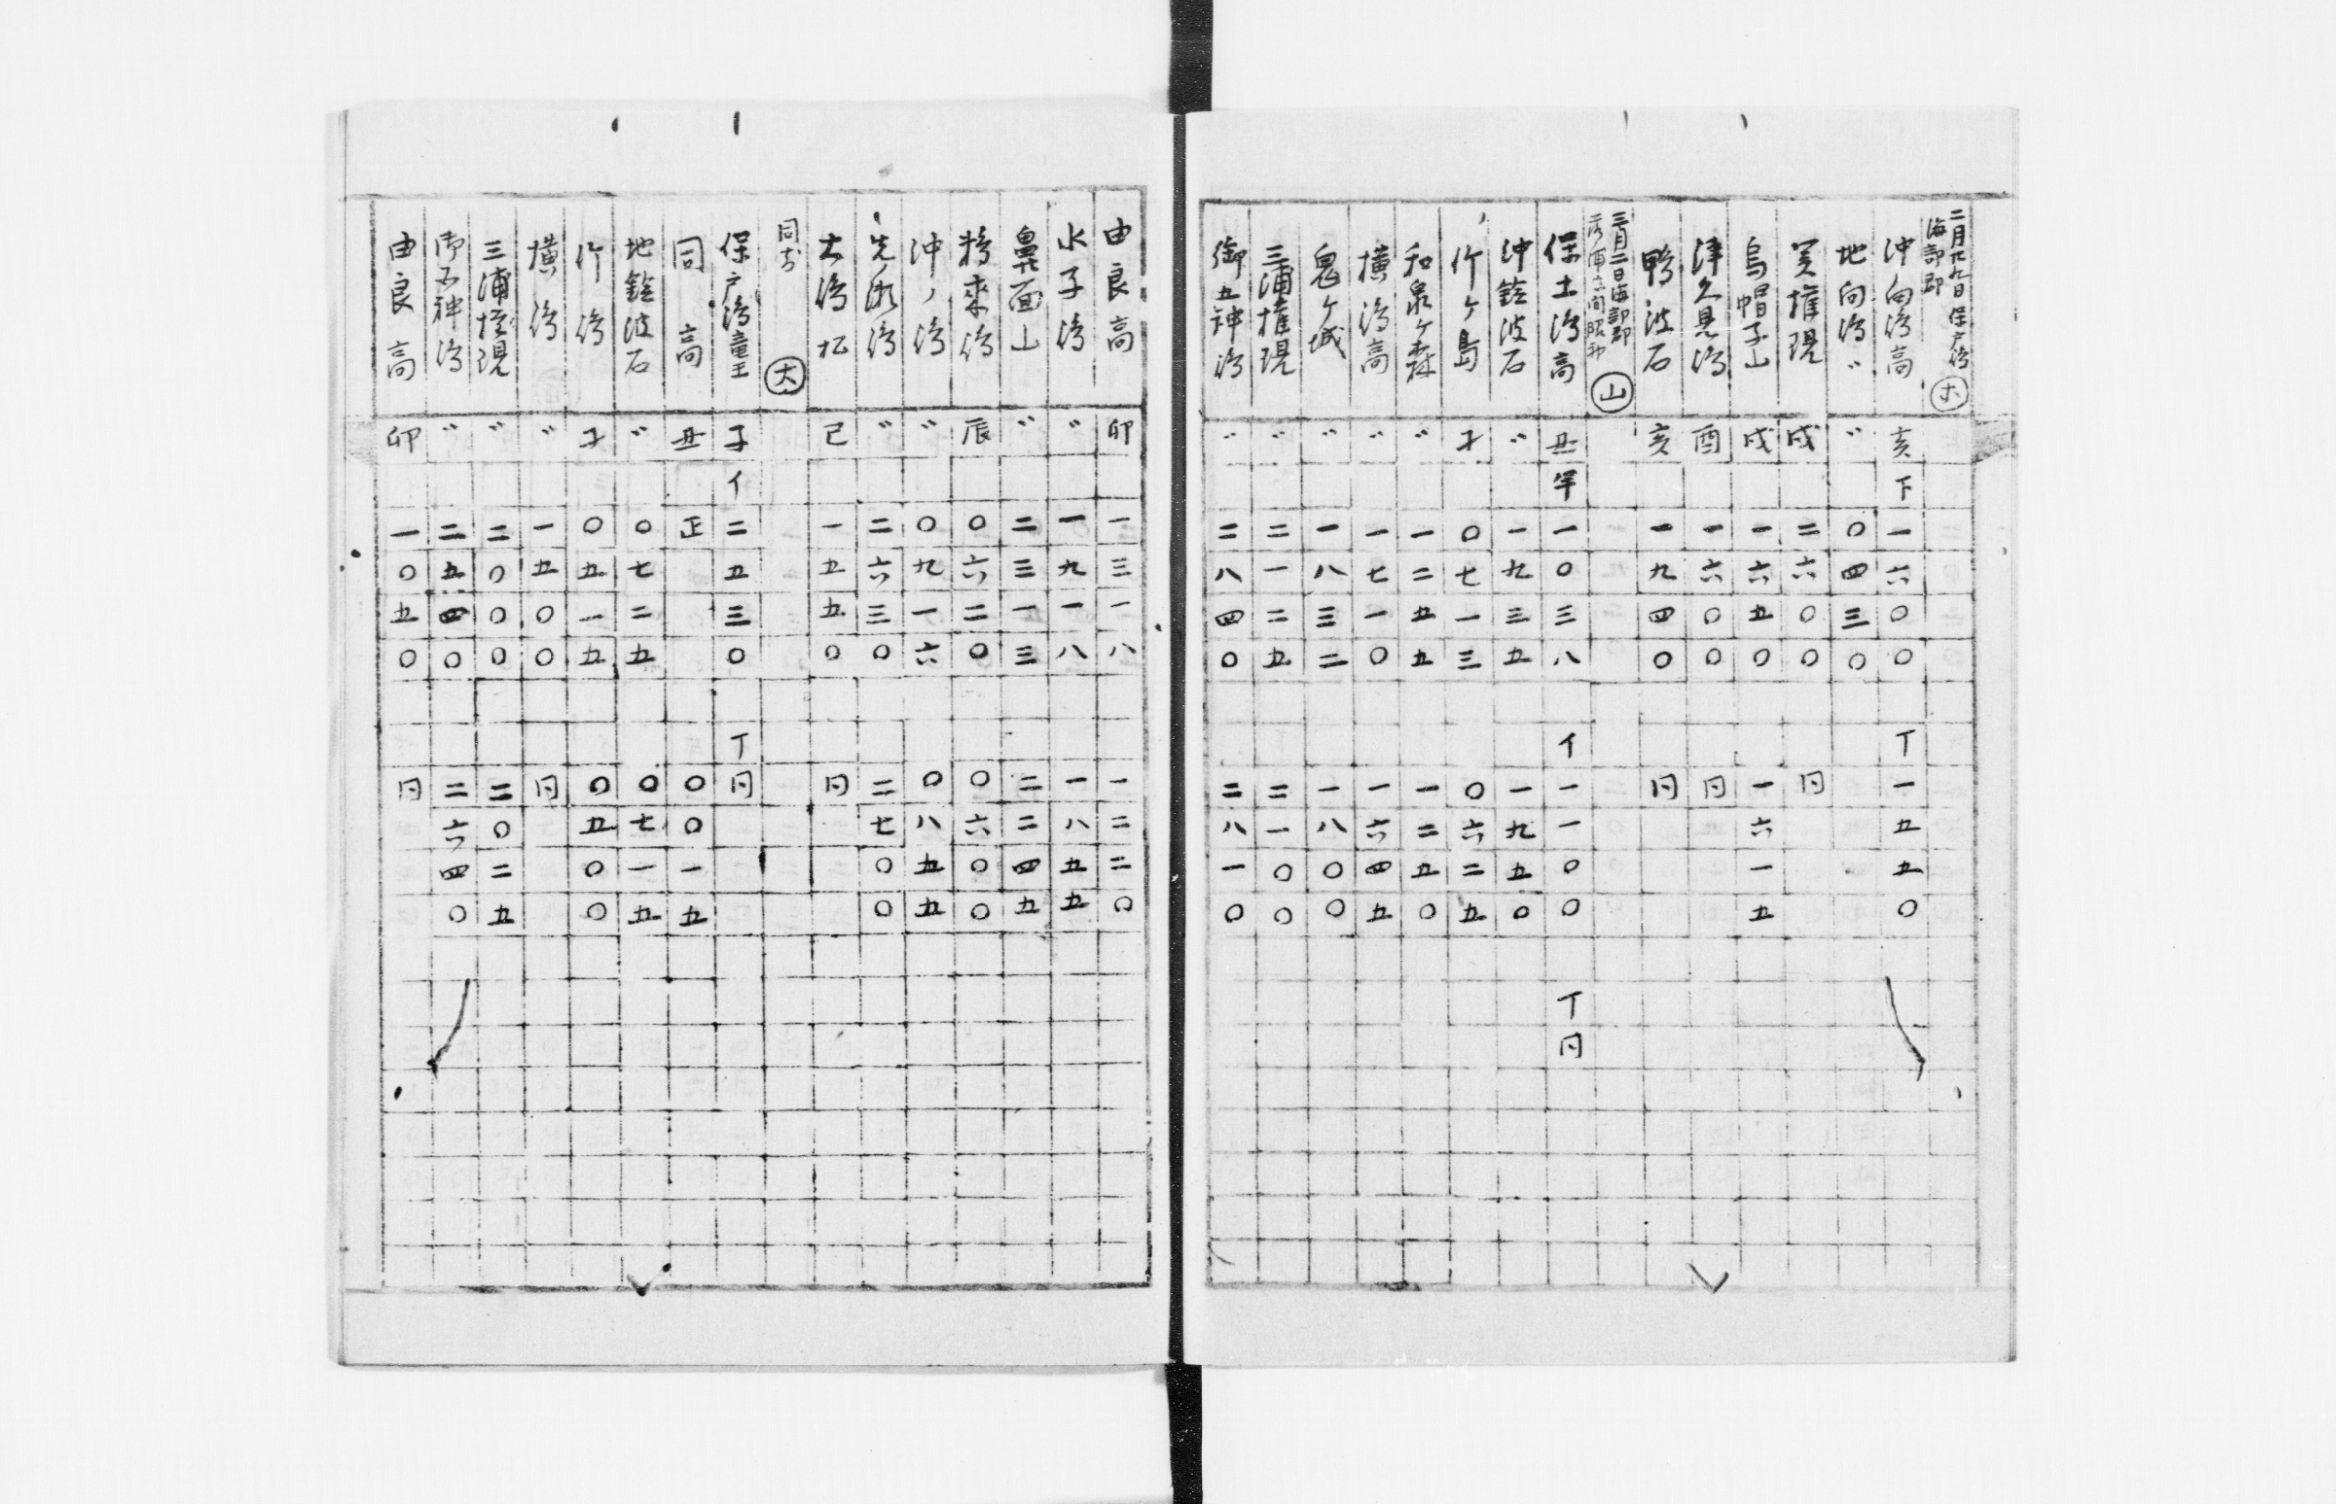 二月廿九日 保戸島
海部郡 ㋭
沖向島高 亥 下 一六〇〇 丁 一五五〇
地向島〃 〃 〇四三〇
権現 戌 二六〇〇 同
烏帽子山 戌 一六五〇 一六一五
津久見島 酉 一六〇〇 同
鴨波石 亥 一九四〇 同
三月二日海部郡
山
保土島高 丑 半 一〇三八 イ 一一〇〇 丁 同
沖 波石 〃 一九三五 一九五〇
竹ヶ島 子 〇七一三 〇六二五
和泉ヶ森 〃 一二五五 一二五〇
横島高 〃 一七一〇 一六四五
鬼ヶ城 〃 一八三二 一八〇〇
三浦権現 〃 二一二五 二一〇〇
御五神島 〃 二八四〇 二八一〇
由良高 卯 一三一八 一二二〇
水子島 〃 一九一八 一八五五
鼻面山 〃 二三一三 二二四五
辰 〇六二〇 〇六〇〇
沖ノ島 〃 〇九一六 〇八五五
島 〃 二六三〇 二七〇〇
大島 巳 一五五〇 同
同 大
保戸島 子 イ 二五三〇 丁 同
同 高 丑 正 〇〇一五
地 波石 〃 〇七二五 〇七一五
竹島 子 〇五一五 〇五〇〇
横島 〃 一五〇〇 同
三浦権現 〃 二〇〇〇 二〇二五
御五神島 〃 二五四〇 二六四〇
由良高 卯 一〇五〇 同